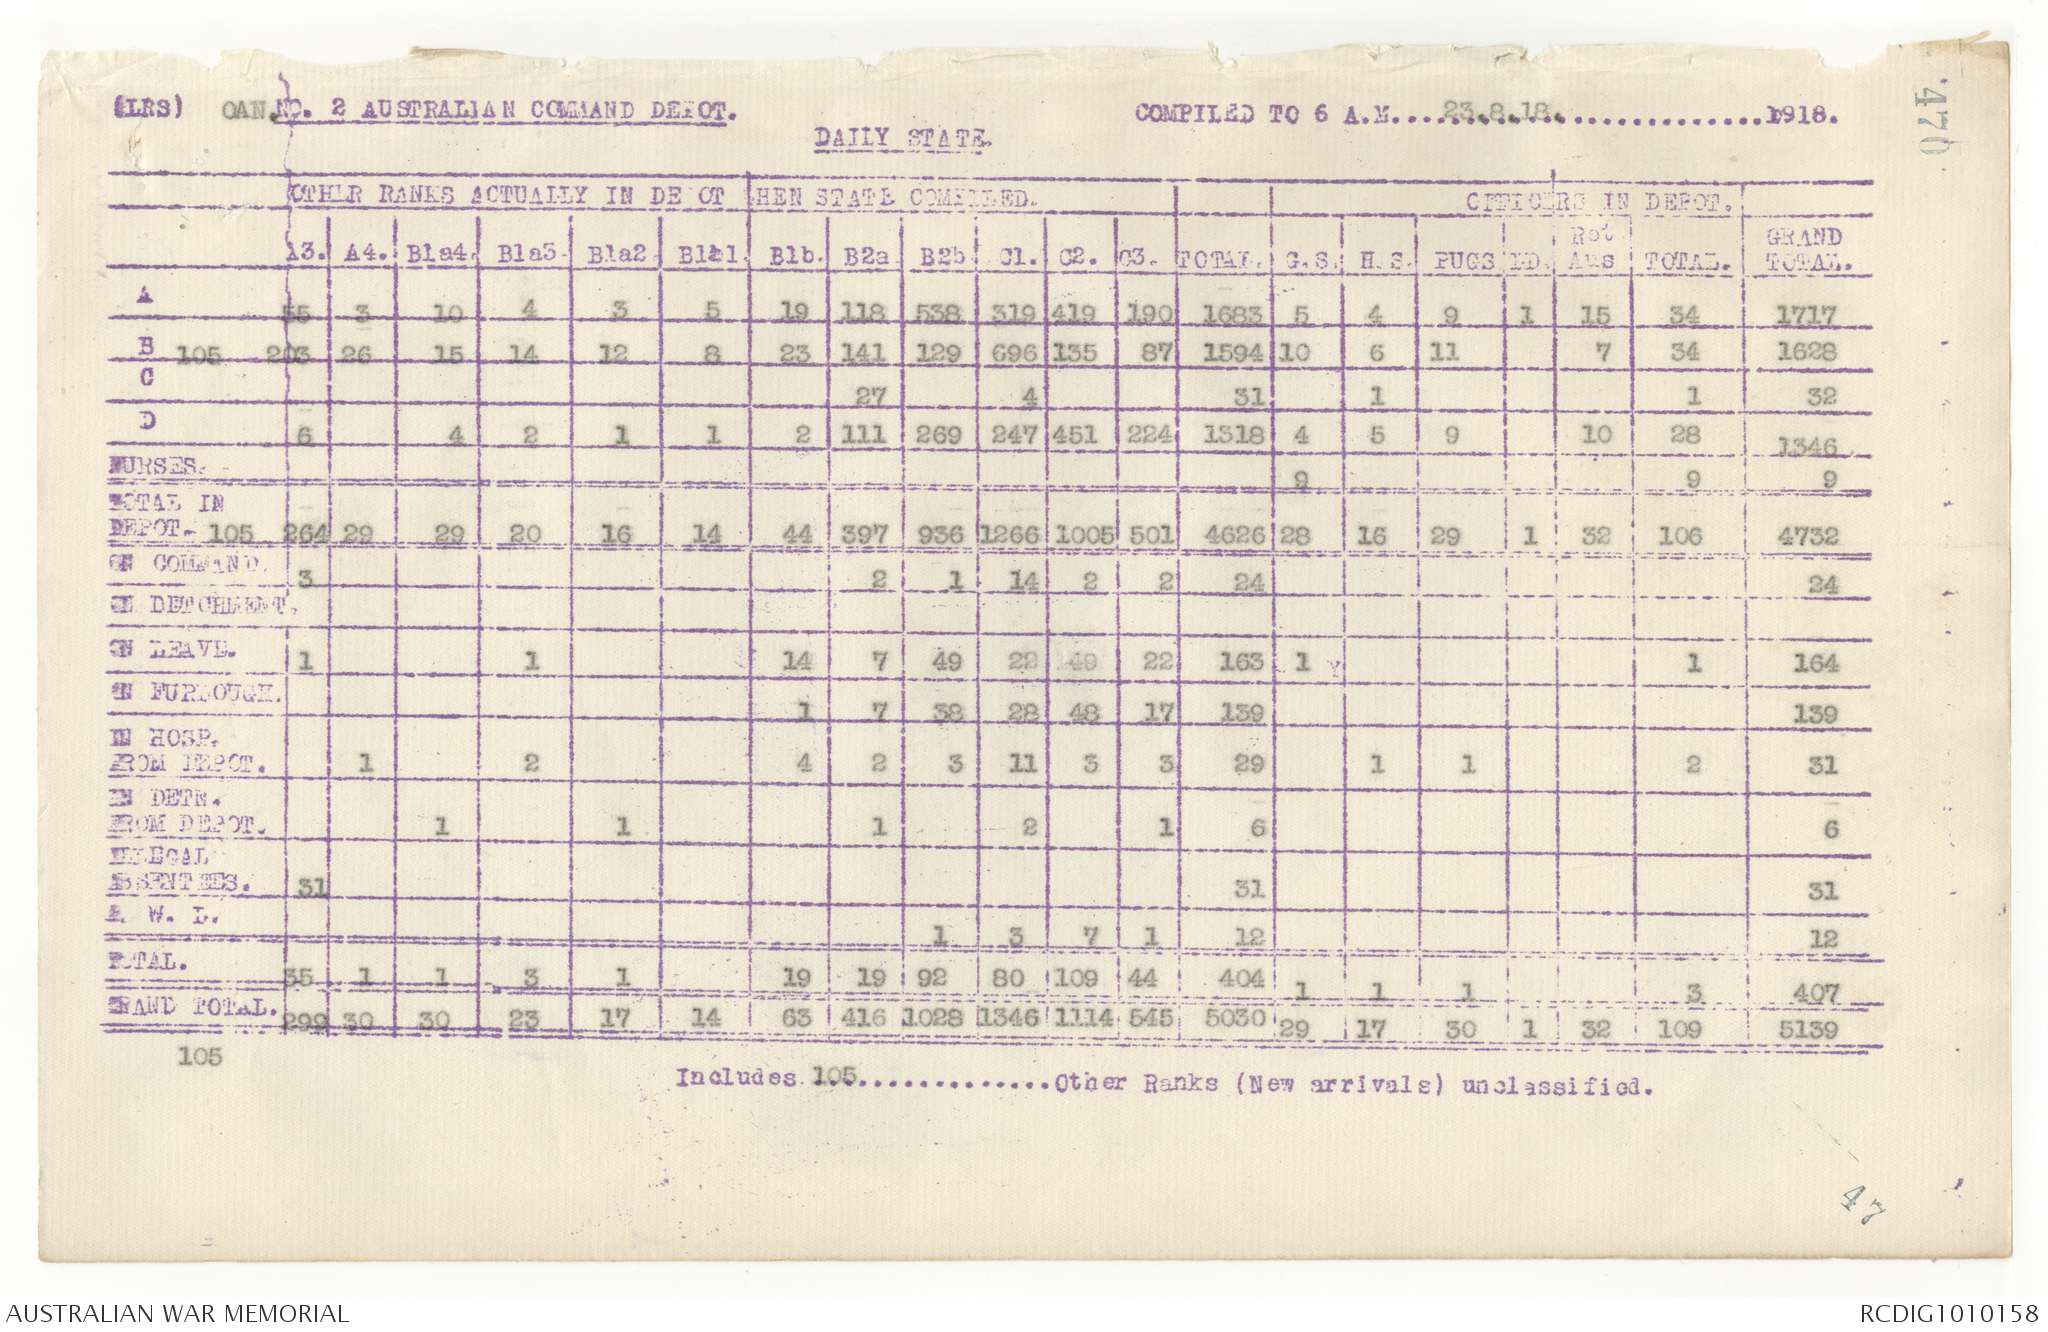 (LRS) OAN. NO. 2 AUSTRALIAN COMMAND DEPOT. COMPILED TO 6 A.M. 23.8.18. 1918.
470
DAILY STATE.
OTHER RANKS ACTUALLY IN DEPOT HEN STATE COMPILED. OFFICERS IN DEPOT.
A3. A4. B1a4. B1a3. B1a2 B1a1 B1b. B2a B2b C1. C2. C3. TOTAL. G.S. H.S. PUGS D. Ret Aus TOTAL. GRAND TOTAL.
A 55 3 10 4 3 5 19 118 538 319 419 190 1683 5 4 9 1 15 34 1717
B 105 203 26 15 14 12 8 23 141 129 696 135 87 1594 10 6 11 7 34 1628
C 27 4 31 1 1 32
D 6 4 2 1 1 2 111 269 247 451 224 1318 4 5 9 10 28 1346
NURSES. 9 9 9
TOTAL IN
DEPOT. 105 264 29 29 20 16 14 44 397 936 1266 1005 501 4626 28 16 29 1 32 106 4732
ON COMMAND. 3 2 1 14 2 2 24 24
ON DETCHMENT.
ON LEAVE. 1 1 14 7 49 22 49 22 163 1 1 164
ON FURLOUGH. 1 7 38 28 48 17 139 139
IN HOSP.
FROM DEPOT. 1 2 4 2 3 11 3 3 29 1 1 2 31
IN DETN.
FROM DEPOT. 1 1 1 2 1 6 6
ILLEGAL
ABSENTEES. 31 31 31
A. W. L. 1 3 7 1 12 12
TOTAL. 35 1 1 3 1 19 19 92 80 109 44 404 1 1 1 3 407
GRAND TOTAL. 299 30 30 23 17 14 63 416 1028 1346 1114 545 5030 29 17 30 1 32 109 5139
105
Includes 105..............Other Ranks (New arrivals) unclassified.
47
AUSTRALIAN WAR MEMORIAL RCDIG1010158